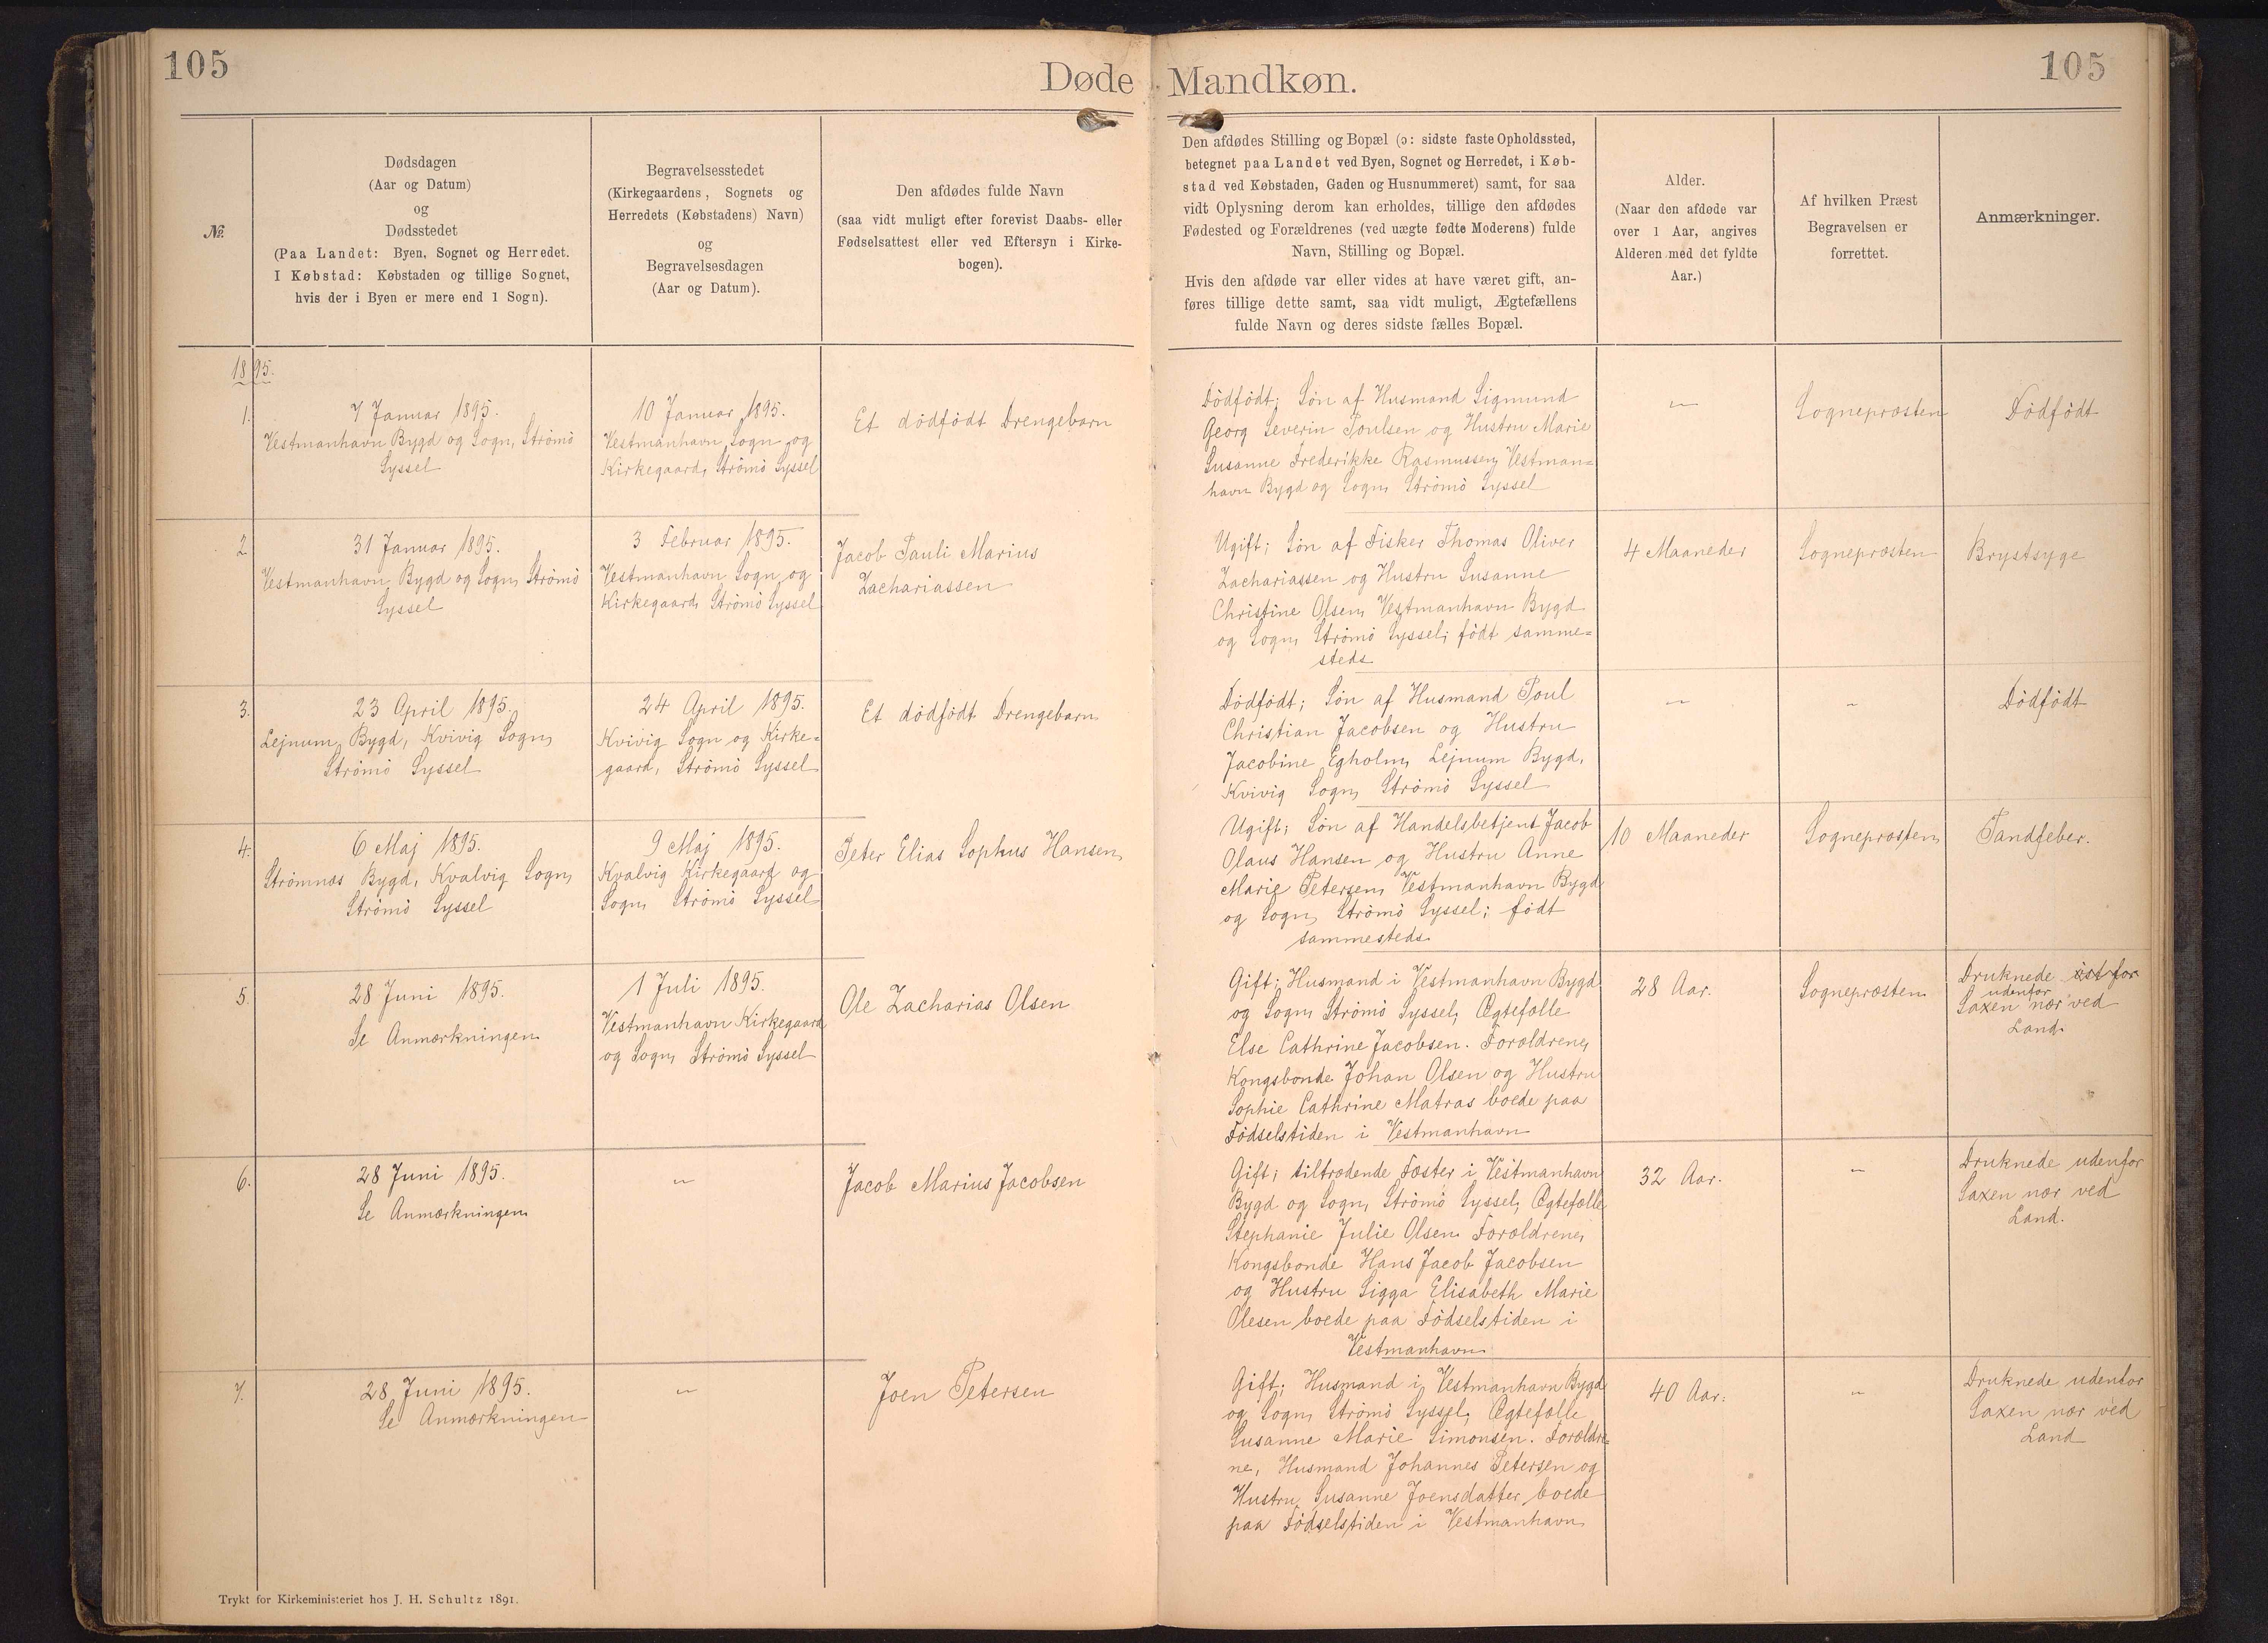 105
Døde Mandkøn.
105
№
Dødsdagen
(Aar og Datum)
og
Dødsstedet
(Paa Landet: Byen, Sognet og Herredet.
I Købstad: Købstaden og tillige Sognet,
hvis der i Byen er mere end 1 Sogn).
Begravelsesstedet
(Kirkegaardens, Sognets og
Herredets (Købstadens) Navn)
og
Begravelsesdagen
(Aar og Datum).
Den afdødes fulde Navn
(saa vidt muligt efter forevist Daabs- eller
Fødselsattest eller ved Eftersyn i Kirke-
bogen).
Den afdødes Stilling og Bopæl (ɔ: sidste faste Opholdssted,
betegnet paa Landet ved Byen, Sognet og Herredet, i Køb-
stad ved Købstaden, Gaden og Husnummeret) samt, for saa
vidt Oplysning derom kan erholdes, tillige den afdødes
Fødested og Forældrenes (ved uægte fødte Moderens) fulde
Navn, Stilling og Bopæl.
Hvis den afdøde var eller vides at have været gift, an-
føres tillige dette samt, saa vidt muligt, Ægtefællens
fulde Navn og deres sidste fælles Bopæl.
Alder.
(Naar den afdøde var
over 1 Aar, angives
Alderen med det fyldte
Aar.)
Af hvilken Præst
Begravelsen er
forrettet.
Anmærkninger.
1895.
1.
7 Januar 1895.
Vestmanhavn Bygd og Sogn, Strömö
Syssel
10 Januar 1895.
Vestmanhavn Sogn og
Kirkegaard, Strömö Syssel
Et dödfödt Drengebarn
Dödfödt; Sön af Husmand Sigmund
Georg Severin Poulsen og Hustru Marie
Susanne Frederikke Rasmussen, Vestman=
havn Bygd og Sogn, Strömö Syssel
—
Sognepræsten
Dödfödt
2
31 Januar 1895.
Vestmanhavn Bygd og Sogn, Strömö
Syssel
3 Februar 1895.
Vestmanhavn Sogn og
Kirkegaard, Strömö Syssel
Jacob Pauli Marius
Zachariassen
Ugift; Sön af Fisker Thomas Oliver
Zachariassen og Hustru Susanne
Christine Olsen, Vestmanhavn Bygd
og Sogn, Strömö Syssel; födt samme=
steds
4 Maaneder
Sognepræsten
Brystsyge
3.
23 April 1895.
Lejnum Bygd, Kvivig Sogn,
Strömö Syssel
24 April 1895.
Kvivig Sogn og Kirke=
gaard, Strömö Syssel
Et dödfödt Drengebarn
Dödfödt; Sön af Husmand Poul
Christian Jacobsen og Hustru
Jacobine Egholm, Lejnum Bygd,
Kvivig Sogn, Strömö Syssel
—
—
Dödfödt
4.
6 Maj 1895.
Strömnæs Bygd, Kvalvig Sogn,
Strömö Syssel
9 Maj 1895.
Kvalvig Kirkegaard og
Sogn, Strömö Syssel
Peter Elias Sophus Hansen
Ugift; Sön af Handelsbetjent Jacob
Olaus Hansen og Hustru Anne
Marie Petersen, Vestmanhavn Bygd
og Sogn, Strömö Syssel; födt
sammesteds
10 Maaneder
Sognepræsten
Tandfeber.
5.
28 Juni 1895.
Se Anmærkningen
1 Juli 1895.
Vestmanhavn Kirkegaard
og Sogn, Strömö Syssel
Ole Zacharias Olsen
Gift; Husmand i Vestmanhavn Bygd
og Sogn, Strömö Syssel, Ægtefælle
Else Cathrine Jacobsen. Forældrene,
Kongsbonde Johan Olsen og Hustru
Sophie Cathrine Matras boede paa
Födselstiden i Vestmanhavn
28 Aar.
Sognepræsten
Druknede östfor
udenfor
Saxen nær ved
Land.
6.
28 Juni 1895.
Se Anmærkningen
—
Jacob Marius Jacobsen
Gift; tiltrædende Fæster i Vestmanhavn
Bygd og Sogn, Strömö Syssel, Ægtefælle
Stephanie Julie Olsen. Forældrene,
Kongsbonde Hans Jacob Jacobsen
og Hustru Sigga Elisabeth Marie
Olesen boede paa Födselstiden i
Vestmanhavn
32 Aar.
—
Druknede udenfor
Saxen nær ved
Land.
7.
28 Juni 1895.
Se Anmærkningen
—
Joen Petersen
Gift; Husmand i Vestmanhavn Bygd
og Sogn, Strömö Syssel, Ægtefælle
Susanne Marie Simonsen. Forældre=
ne, Husmand Johannes Petersen og
Hustru Susanne Joensdatter boede
paa Födselstiden i Vestmanhavn
40 Aar.
—
Druknede udenfor
Saxen nær ved
Land
Trykt for Kirkeministeriet hos J. H. Schultz 1891.